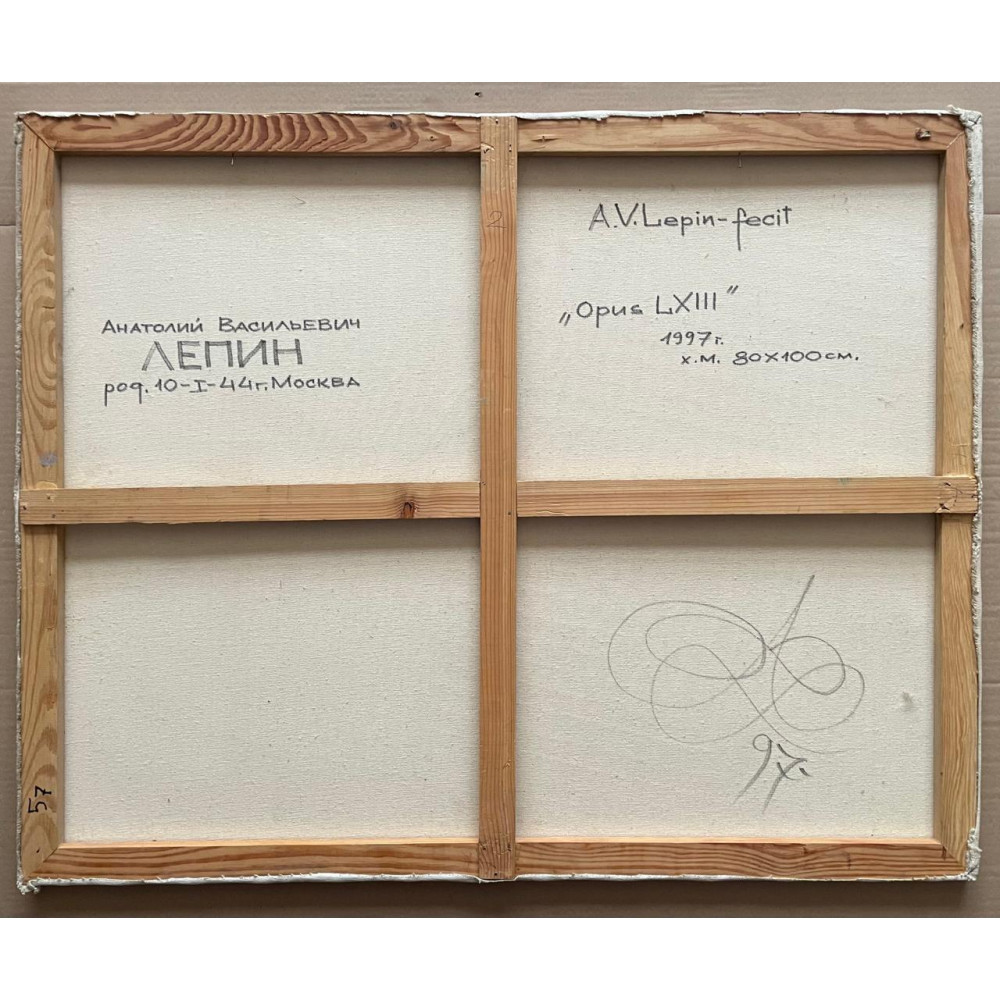 Анатолий Васильевич
ЛЕПИН
род. 10-I-44г, Москва
2
A.V.Lepin-fecit
„Opus LXIII”
1997г.
х.м. 80х100см.
97.
57